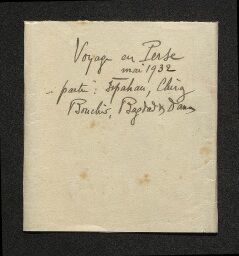 Voyage en Perse
mai 1932
partie: Ispahan, Chiraz
Bouchir, Bagdad &